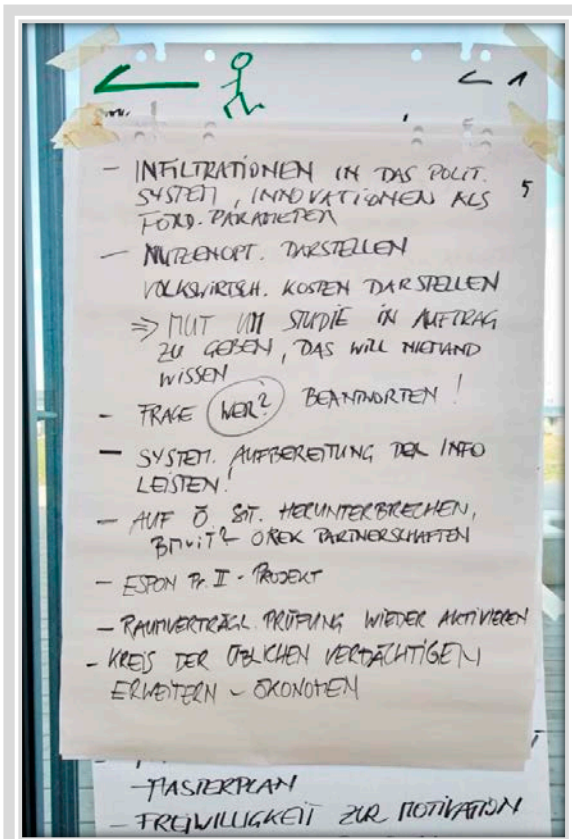 1
5
- INFILTRATIONEN IN DAS POLIT.
SYSTEM, INNOVATIONEN ALS
FÖRD. PARAMETER
- NUTZENOPT. DARSTELLEN
VOLKSWIRTSCH. KOSTEN DARSTELLEN
⇒ MUT UM STUDIE IN AUFTRAG
ZU GEBEN, DAS WILL NIEMAND
WISSEN
- FRAGE WER? BEANTWORTEN!
- SYSTEM. AUFBEREITUNG DER INFO
LEISTEN!
- AUF Ö. SIT. HERUNTERBRECHEN,
BMVIT? ÖREK PARTNERSCHAFTEN
- ESPON Pr. II - PROJEKT
- RAUMVERTRÄGL. PRÜFUNG WIEDER AKTIVIEREN
- KREIS DER ÜBLICHEN VERDÄCHTIGEN
ERWEITERN - ÖKONOMEN
- MASTERPLAN
- FREIWILLIGKEIT ZUR MOTIVATION